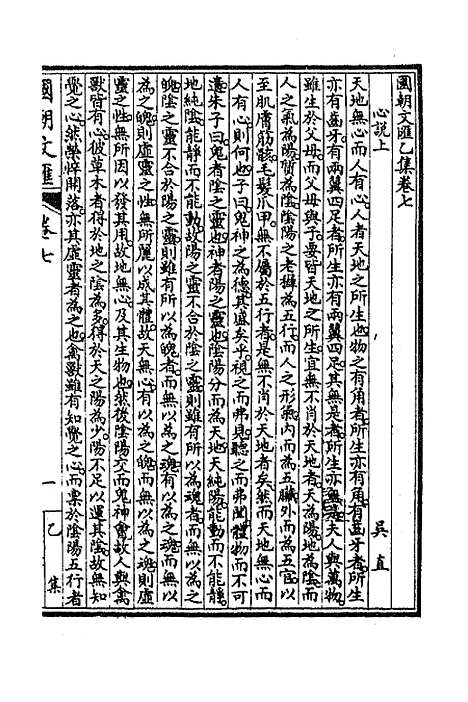 國朝文匯乙集卷七
心説上
吳直
天地無心而人有心人者天地之所生也物之有角者所生亦有角有齒牙者所生
亦有齒牙有兩翼四足者所生亦有兩翼四足其無是者所生亦無是夫人與萬物
雖生於父母而父母與子要皆天地之所生宜無不肖於天地者天為陽地為陰而
人之氣為陽質為陰陰陽之老穉為五行而人之形氣內而為五臟外而為五官以
至肌膚筋骸毛髮爪甲無不屬於五行者是無不肖於天地者矣然而天地無心而
人有心則何也子曰鬼神之為德其盛矣乎視之而弗見聽之而弗聞體物而不可
遺朱子曰鬼者陰之靈也神者陽之靈也陰陽分而為天地天純陽能動而不能靜
地純陰能靜而不能動故陰之靈不合於陽之靈則雖有所以為魄者而無以為之
魄陰之靈不合於陽之靈則雖有所以為魄者而無以為之魂有以為之魂而無以
為之魄則虛靈之性無所麗以成其體故天無心有以為之魄而無以為之魂則虛
靈之性無所因以發其用故地無心及其生物也然後陰陽交而鬼神會故人與禽
獸皆有心彼草木者得於地之陰為多得於天之陽為少陽不足以運其陰故無知
覺之心然榮悴開落亦其虛靈者為之也禽獸雖有知覺之心而稟於陰陽五行者
國朝文匯
卷七
一
乙
集